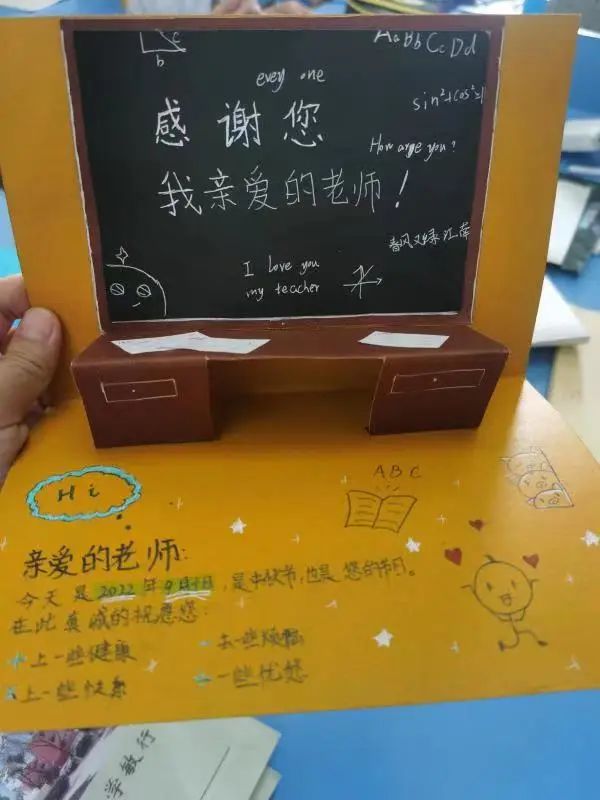 c
b
Aa Bb Cc Dd
evey one
sin²+cos²=1
感谢您
How arge you?
我亲爱的老师!
春风又绿江南
I love you
my teacher
Hi
A B C
亲爱的老师:
今天是2022年9月10日,是中秋节,也是您的节日。
在此真诚的祝愿您:
+上一些健康
-去一些烦恼
×上一些快乐
÷一些忧愁
学教行